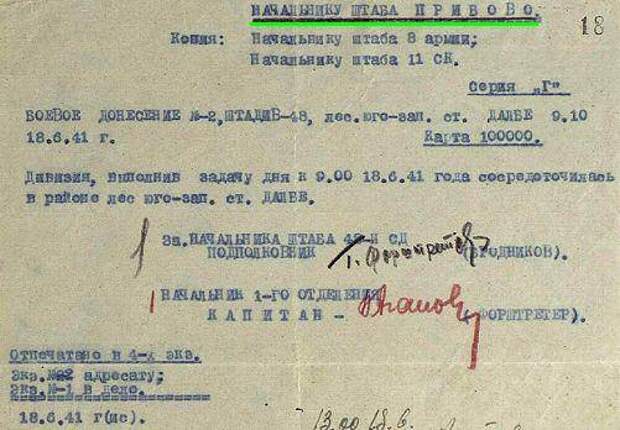 НАЧАЛЬНИКУ ШТАБА ПРИВОВО.
18
Копия: Начальнику штаба 8 армии;
Начальнику штаба 11 СК.
Серия „Г"
БОЕВОЕ ДОНЕСЕНИЕ №-2, ШТАДИВ-48, лес.юго-зап. ст. ДАЛБЕ 9.10
18.6.41 г.
Карта 100000.
Дивизия, выполнив задачу дня к 9.00 18.6.41 года сосредоточилась
в районе лес юго-зап. ст. ДАЛБЕ.
За. НАЧАЛЬНИКА ШТАБА 48-Й СД
ПОДПОЛКОВНИК (БРОДНИКОВ).
НАЧАЛЬНИК 1-ГО ОТДЕЛЕНИЯ
КАПИТАН - (ФОРШТРЕТЕР).
Отпечатано в 4-х экз.
Экз.№2 адресату;
Экз.№-1 в дело.
18.6.41 г(ис).
13.00 18.6.